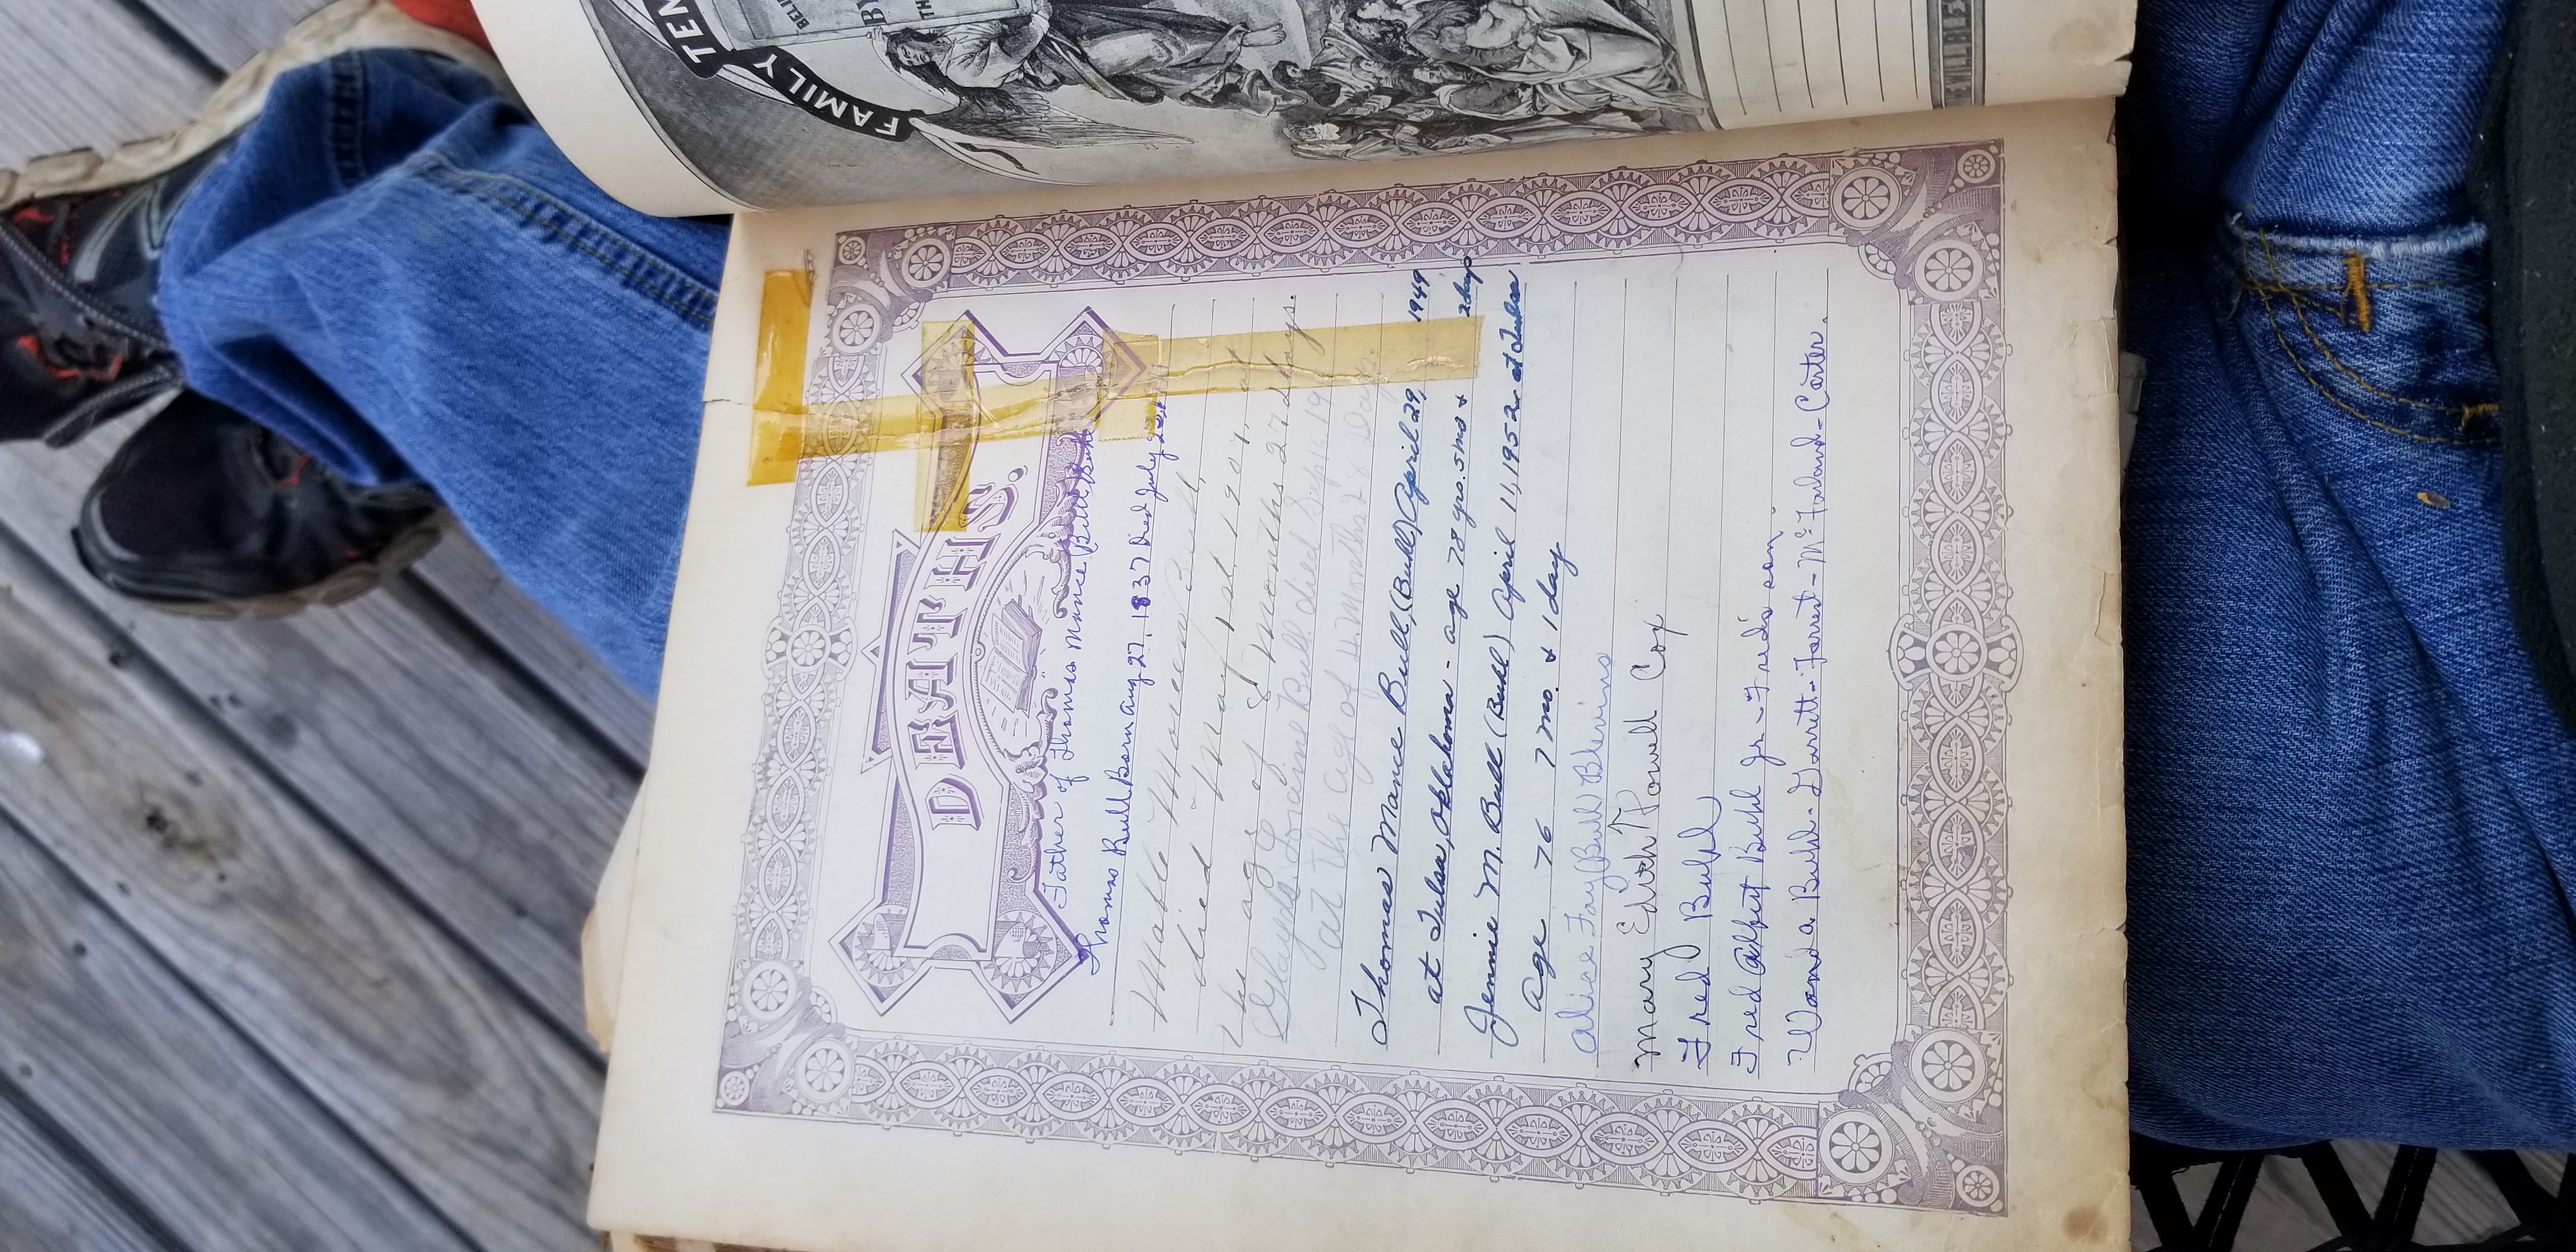 FAMILY TEM
BELI
BY
TH
DEATHS.
Father of Thomas Mance Bull Buhl
Thomas Bull Born Aug 27, 1837 Died July
Mable Bull,
died May 1st, 1907, at
the age of 8 months 27 days.
Gladys Loraine Bull died Sept 16, 19
at the age of 11. Months 28 Days.
Thomas Mance Bull, (Buhl) April 29, 1949
at Tulsa, Oklahoma - age 78 yrs. 5 mos & 2 days
Jennie M. Bull (Buhl) April 11, 1952 at Tulsa
Age 76 7 mo. & 1 day
Alice Fay Buhl Blevins
Mary Edith Powell Cox
Fred Buhl
Fred Albert Buhl Jr - Fred's son.
Wanda Buhl - Garrett - Forrest - McFarland - Carter.